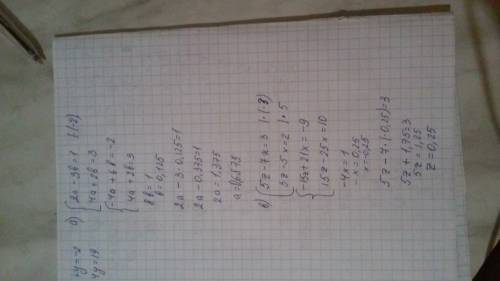 4y=19
б) {2a-3b=1 |·(-2)
4a+2b=3
{-4a+6b=-2
4a+2b=3
8b=1
b=0,125
2a-3·0,125=1
2a-0,375=1
2a=1,375
a=0,6875
в) {5z-7x=3 |·(-3)
3z-5x=2 |·5
{-15z+21x=-9
15z-25x=10
-4x=1
-x=0,25
x=-0,25
5z-7·(-0,25)=3
5z+1,75=3
5z=1,25
z=0,25